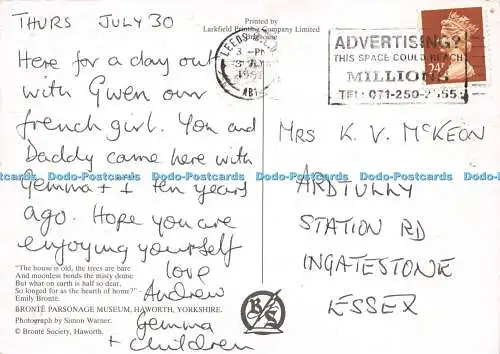 THURS JULY 30
Here for a day out
with Gwen our
french girl. You and
Daddy came here with
Gemma + I ten years
ago. Hope you are
enjoying yourself
love
Andrew
Gemma
+ children
"The house is old, the trees are bare
And moonless bends the misty dome
But what on earth is half so dear,
So longed for as the hearth of home?" –
Emily Brontë.
BRONTË PARSONAGE MUSEUM, HAWORTH, YORKSHIRE.
Photograph by Simon Warner.
© Brontë Society, Haworth.
Printed by
Larkfield Printing Company Limited
LEEDS
3 - PM
ADVERTISING?
THIS SPACE COULD REACH
MILLIONS
TEL: 071-250-2555
24P
MRS K. V. McKEON
ARDTULLY
STATION RD
INGATESTONE
ESSEX
B S
Dodo-Postcards Dodo-Postcards Dodo-Postcards Dodo-Postcards Dodo-Postcards